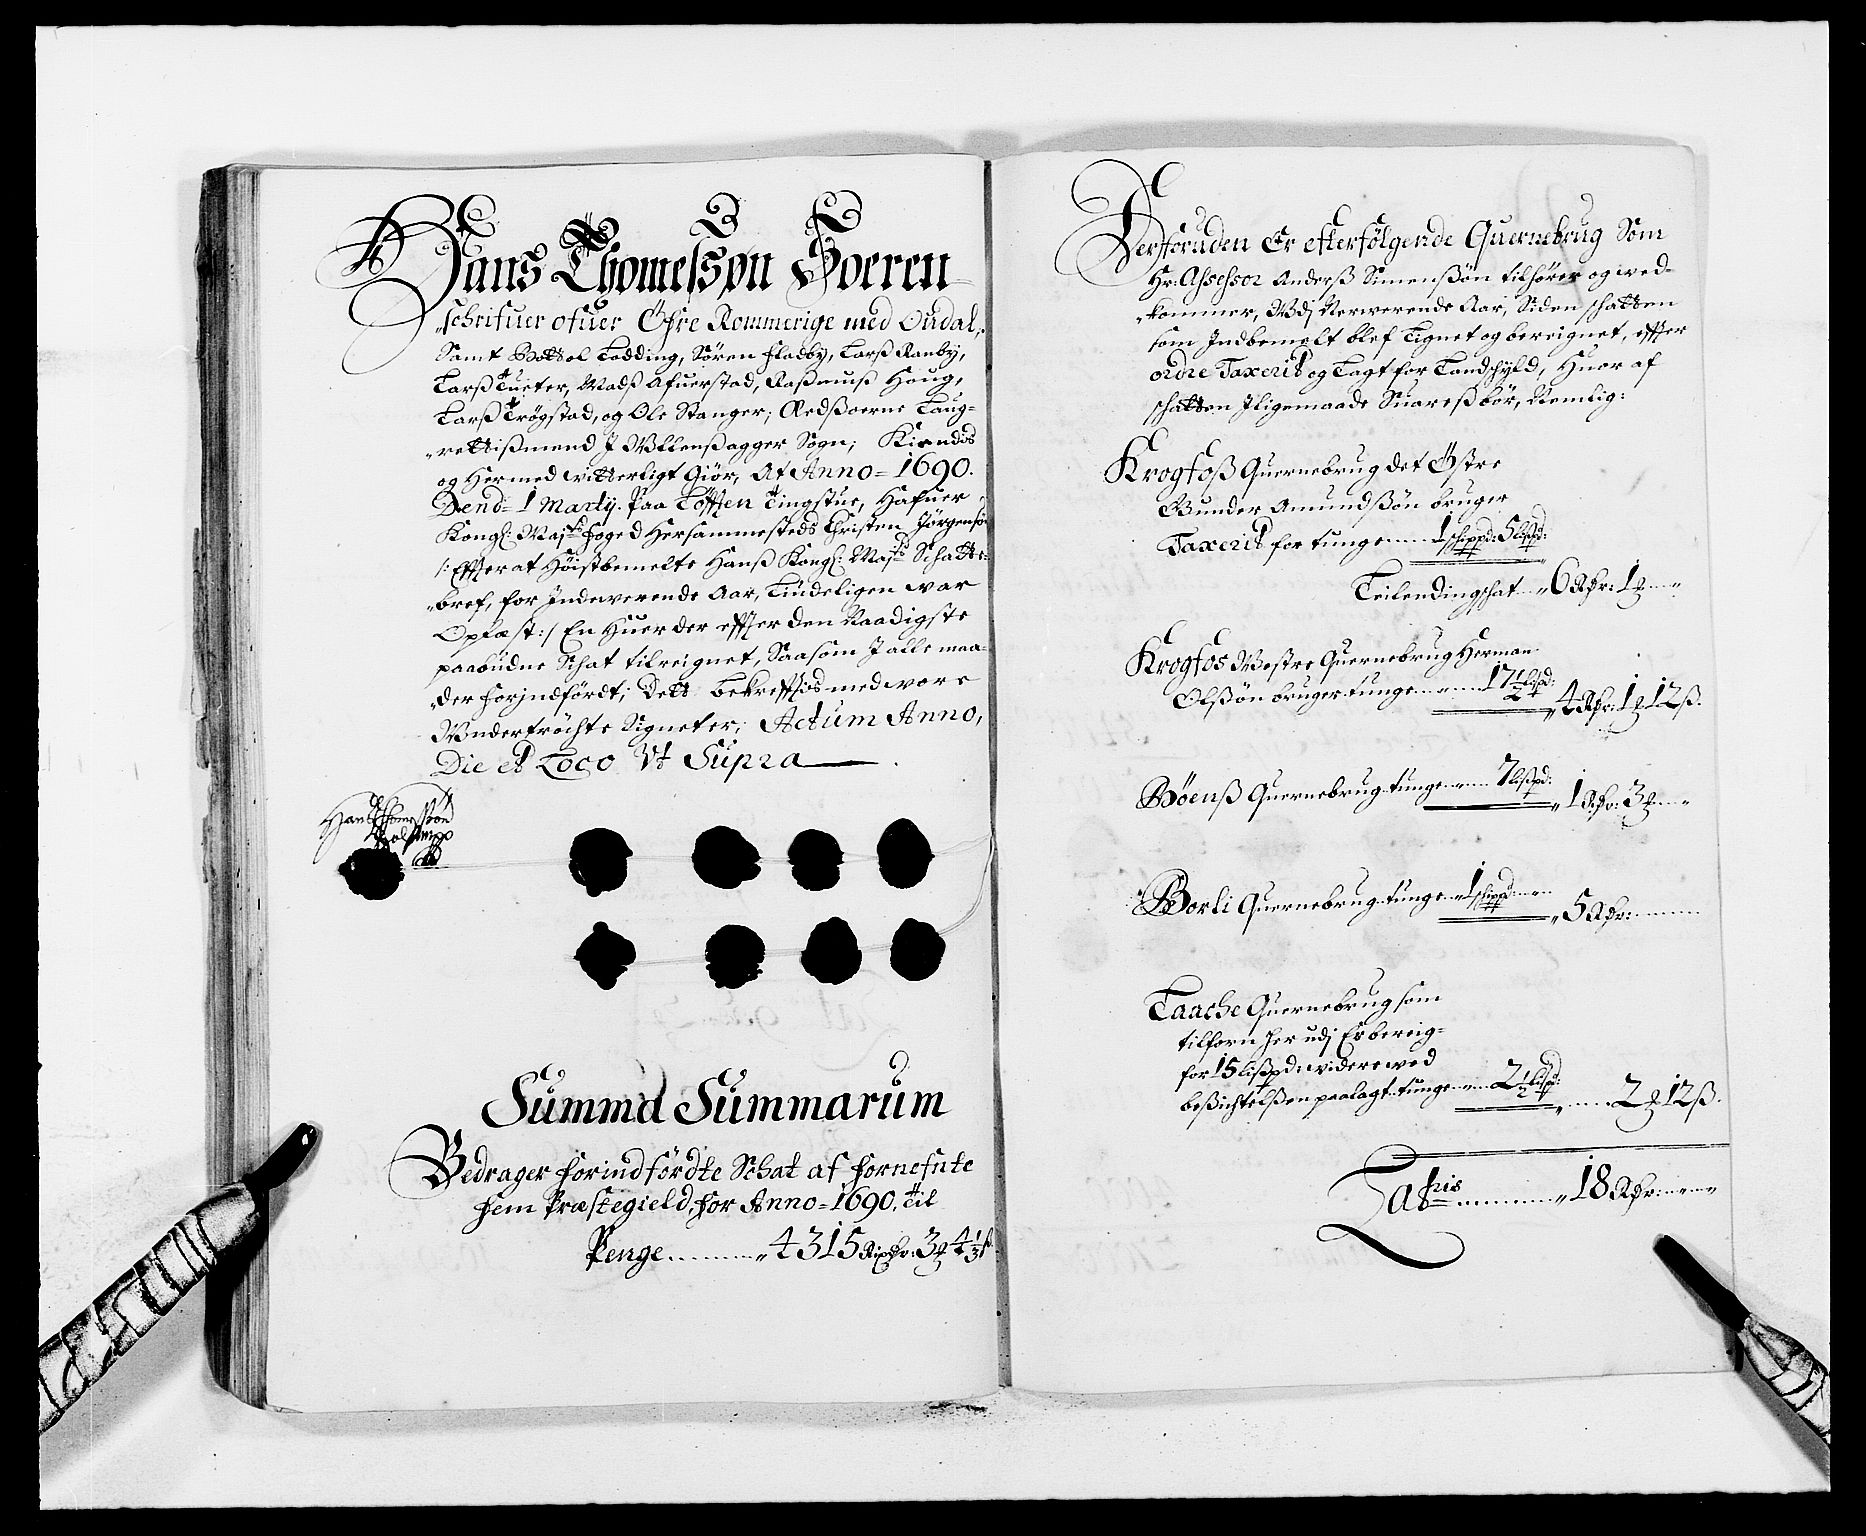 Hans Thomessøn Soeren-
schrifuer ofuer Öfre Rommerige med Oudal,
Samt Bottol Lodding, Søren Fladby, Larß Ranby,
Larß Tueter, Madß Afuerstad, Raßmuß Houg,
Larß Trøgstad, og Ole Stanger; Ædßoerne Laug-
rettißmend J Ullenßagger Sogn; Kiendis
og Hermed witterligt Giör, At Anno = 1690.
Dend = 1 Marty. Paa Töfften Tingstue, Hafuer
Kongl: Mayts foged Hersammesteds Christen Jörgensön
/: Effter at Höistbemelte Hanß Kongl: Mayts Schatte-
bref, for Indewerende Aar, Tüdeligen war
Oplæst :/ En Huer der effter den Naadigste
paabudne Schat tilreignet, Saasom J alle maa-
der forjndfördt; Dett bekrefftis med wore
Undertröchte Signeter; Actum Anno,
Die et Loco Ut Supra
Hans Thomessøn
Summa Summarum
Bedrager forindfördte Schat af fornefnte
fem Præstegield, for Anno = 1690, til
Penge 4315 Rixdr: 3 4 1/3 ß
Derforuden Er efterfölgende Quernebrug Som
Hr: Assessor Anderß Simensßön tilhörer og wed-
kommer, Udj Nerwerende Aar, Siden schatten
som Indbemelt blef Lignet og bereignet, effter
ordre Taxerit og Lagt for Landschyld, Huor af
schatten Jligemaade Suareß bör, Nemlig:
Krogfoß Quernebrug det Östre
Gunder Amundßön bruger
Taxerit for tunge 1 schippd: 5 lißpd:
Leilendingschat 6 Rdr: 1
Krogfos Westre Quernebrug Herman
Olßön bruger tunge 17 1/2 lißpd:
4 Rdr: 1 12 ß.
Böenß Quernebrug tunge 7 lißpd:
1 Rdr: 3
Borli Quernebrug tunge 1 schippd:
5 Rdr:
Taache Quernebrug som
tilforn her udj Er bereig-
for 15 lißpd: widere wed
beßichtelßen paalagt tunge 2 1/2 lißpd:
2 12 ß.
Lateris 18 Rdr: